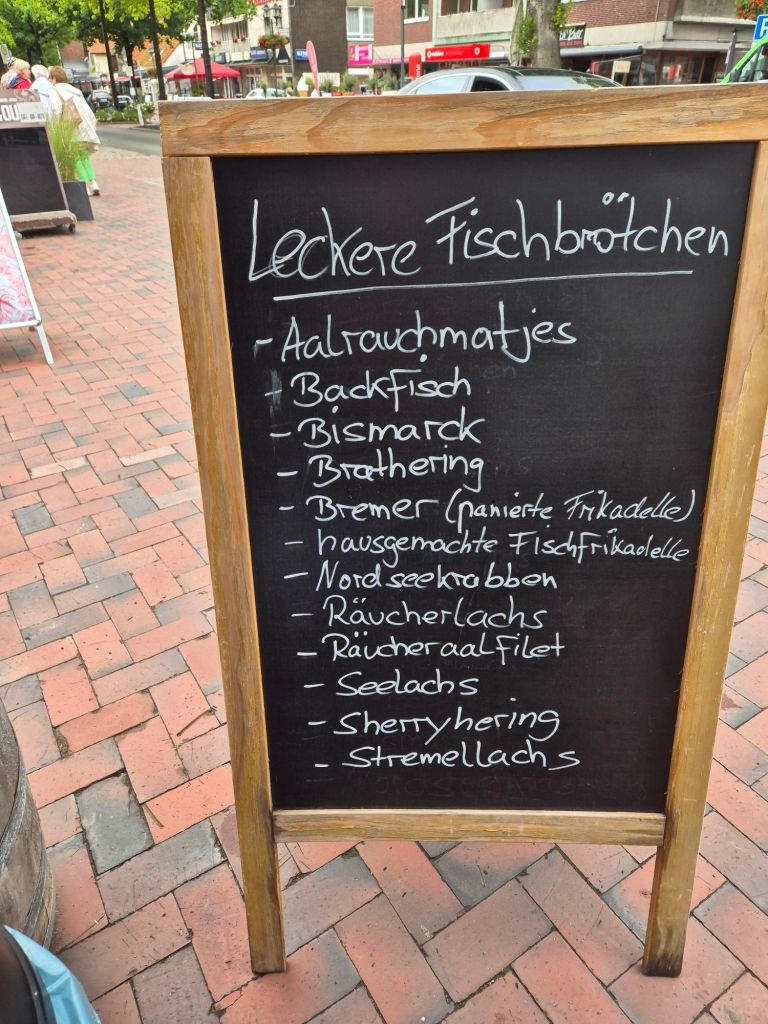 Leckere Fischbrötchen
- Aalrauchmatjes
- Backfisch
- Bismarck
- Brathering
- Bremer (panierte Frikadelle)
- hausgemachte Fischfrikadelle
- Nordseekrabben
- Räucherlachs
- Räucheraalfilet
- Seelachs
- Sherryhering
- Stremellachs